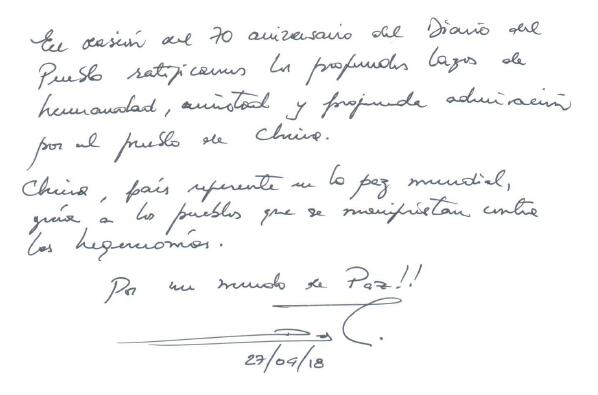 En ocasión del 70 aniversario del Diario del
Pueblo ratificamos los profundos lazos de
hermandad, amistad y profunda admiración
por el pueblo de China.
China, país referente en la paz mundial,
guía a los pueblos que se manifiestan contra
las hegemonías.
Por un mundo de Paz!!
27/09/18